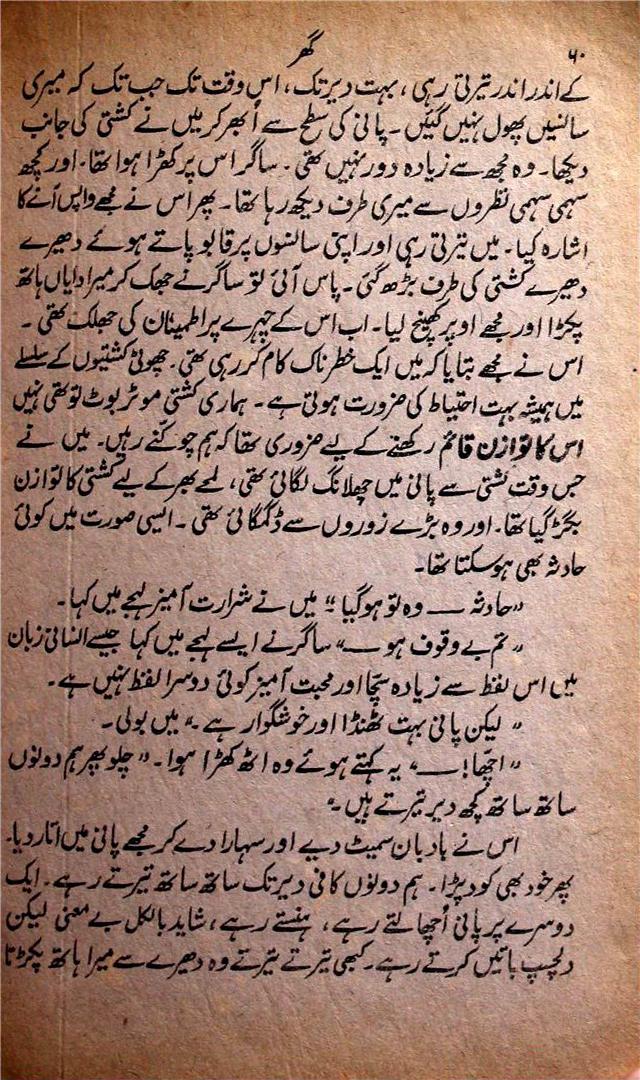 ۶۰
گھر
کے اندر اندر تیرتی رہی، بہت دیر تک، اس وقت تک جب تک کہ میری
سانسیں پھول نہیں گئیں۔ پانی کی سطح سے اُبھر کر میں نے کشتی کی جانب
دیکھا۔ وہ مجھ سے زیادہ دور نہیں تھی۔ ساگر اس پر کھڑا ہوا تھا۔ اور کچھ
سہمی سہمی نظروں سے میری طرف دیکھ رہا تھا۔ پھر اس نے مجھے واپس آنے کا
اشارہ کیا۔ میں تیرتی رہی اور اپنی سانسوں پر قابو پاتے ہوئے دھیرے
دھیرے کشتی کی طرف بڑھ گئی۔ پاس آئی تو ساگر نے جھک کر میرا دایاں ہاتھ
پکڑا اور مجھے اوپر کھینچ لیا۔ اب اس کے چہرے پر اطمینان کی جھلک تھی۔
اس نے مجھے بتایا کہ میں ایک خطرناک کام کر رہی تھی۔ چھوٹی کشتیوں کے سلسلے
میں ہمیشہ بہت احتیاط کی ضرورت ہوتی ہے۔ ہماری کشتی موٹر بوٹ تو تھی نہیں
اس کا توازن قائم رکھنے کے لیے ضروری تھا کہ ہم چوکنّے رہیں۔ میں نے
جس وقت کشتی سے پانی میں چھلانگ لگائی تھی، لمحے بھر کے لیے کشتی کا توازن
بگڑ گیا تھا۔ اور وہ بڑے زوروں سے ڈگمگائی تھی۔ ایسی صورت میں کوئی
حادثہ بھی ہو سکتا تھا۔
"حادثہ — وہ تو ہو گیا" میں نے شرارت آمیز لہجے میں کہا۔
"تم بے وقوف ہو —" ساگر نے ایسے لہجے میں کہا جیسے انسانی زبان
میں اس لفظ سے زیادہ سچّا اور محبت آمیز کوئی دوسرا لفظ نہیں ہے۔
"لیکن پانی بہت ٹھنڈا اور خوشگوار ہے۔" میں بولی۔
"اچّھا! —" یہ کہتے ہوئے وہ اٹھ کھڑا ہوا۔ "چلو پھر ہم دونوں
ساتھ ساتھ کچھ دیر تیرتے ہیں۔"
اس نے بادبان سمیٹ دیے اور سہارا دے کر مجھے پانی میں اتار دیا۔
پھر خود بھی کود پڑا۔ ہم دونوں کافی دیر تک ساتھ ساتھ تیرتے رہے۔ ایک
دوسرے پر پانی اُچھالتے رہے، ہنستے رہے، شاید بالکل بے معنی لیکن
دلچسپ باتیں کرتے رہے۔ کبھی تیرتے تیرتے وہ دھیرے سے میرا ہاتھ پکڑتا